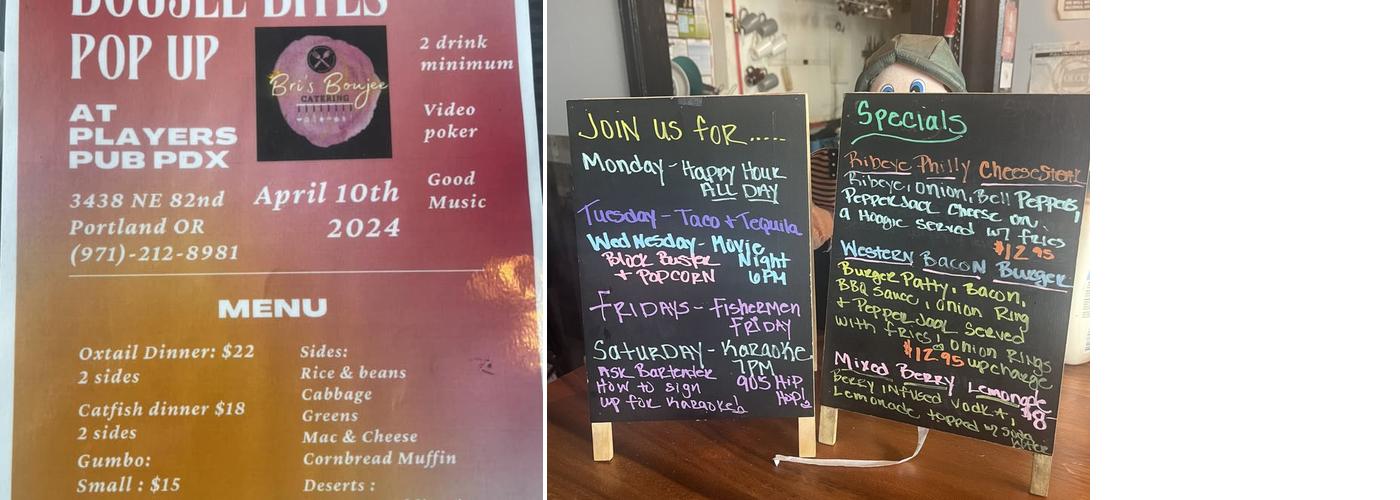 BOUJEE BITES
POP UP
AT
PLAYERS
PUB PDX
3438 NE 82nd
Portland OR
(971)-212-8981
Bri's Boujee
CATERING
April 10th
2024
2 drink
minimum
Video
poker
Good
Music
MENU
Oxtail Dinner: $22
2 sides
Catfish dinner $18
2 sides
Gumbo:
Small : $15
Sides:
Rice & beans
Cabbage
Greens
Mac & Cheese
Cornbread Muffin
Deserts :
JOIN US FOR.....
Monday - Happy Hour
ALL DAY
Tuesday - Taco + Tequila
Wednesday - Movie
Block Buster Night
+ POPCORN 6PM
FRIDAYS - FISHERMEN
FRIDAY
SATURDAY - Karaoke
7PM
Ask Bartender
How to sign
up for Karaoke!
90s Hip
Hop!
Specials
Ribeye Philly CheeseSteak
Ribeye, Onion, Bell Peppers,
PepperJack Cheese on
a Hoagie served w/ fries
$12.95
Western Bacon Burger
Burger Patty, Bacon,
BBQ Sauce, Onion Ring
+ PepperJack Served
with fries, Onion Rings
$12.95 upcharge
Mixed Berry Lemonade
$8
Berry Infused Vodka,
Lemonade topped w/ Soda
Water